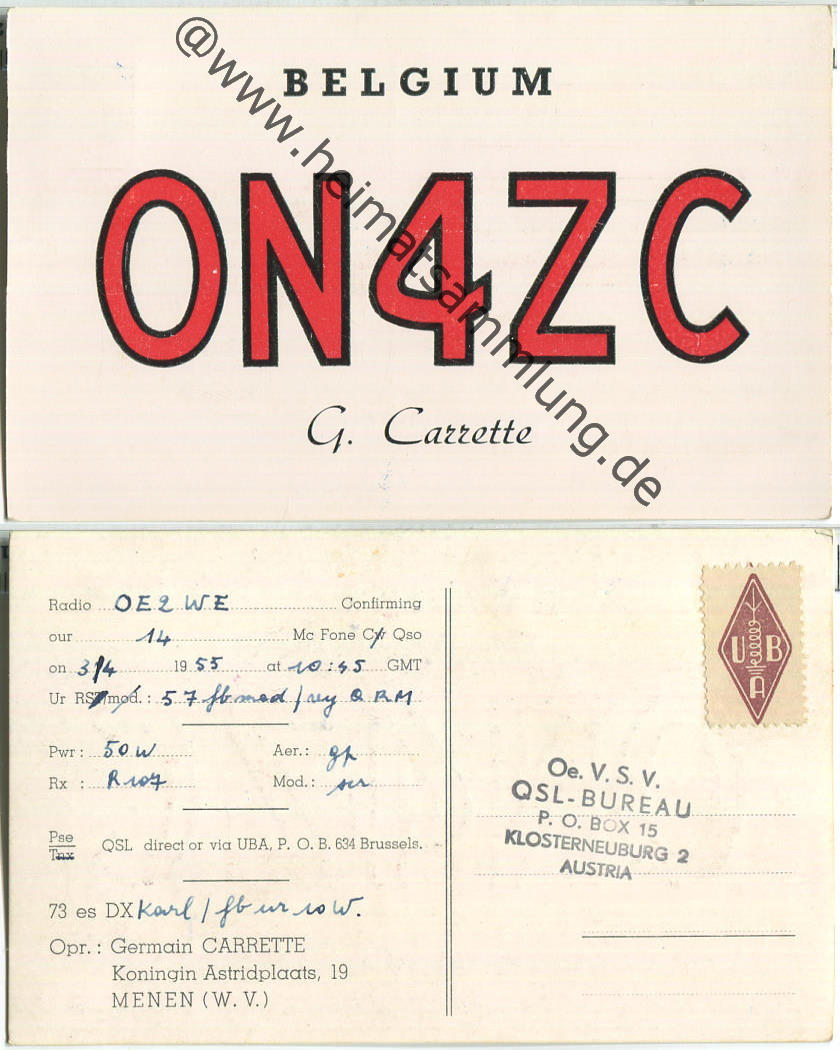 BELGIUM
ON4ZC
G. Carrette
@www.heimatsammlung.de
Radio OE2WE Confirming
our 14 Mc Fone Cw Qso
on 3/4 1955 at 10:45 GMT
Ur RST/mod.: 57 fb mod / vy QRM
Pwr: 50w Aer.: gp
Rx : R107 Mod.: scr
Pse
Tnx QSL direct or via UBA, P. O. B. 634 Brussels.
73 es DX Karl / fb ur 10 W.
Opr.: Germain CARRETTE
Koningin Astridplaats, 19
MENEN (W. V.)
UBA
Oe. V. S. V.
QSL-BUREAU
P. O. BOX 15
KLOSTERNEUBURG 2
AUSTRIA